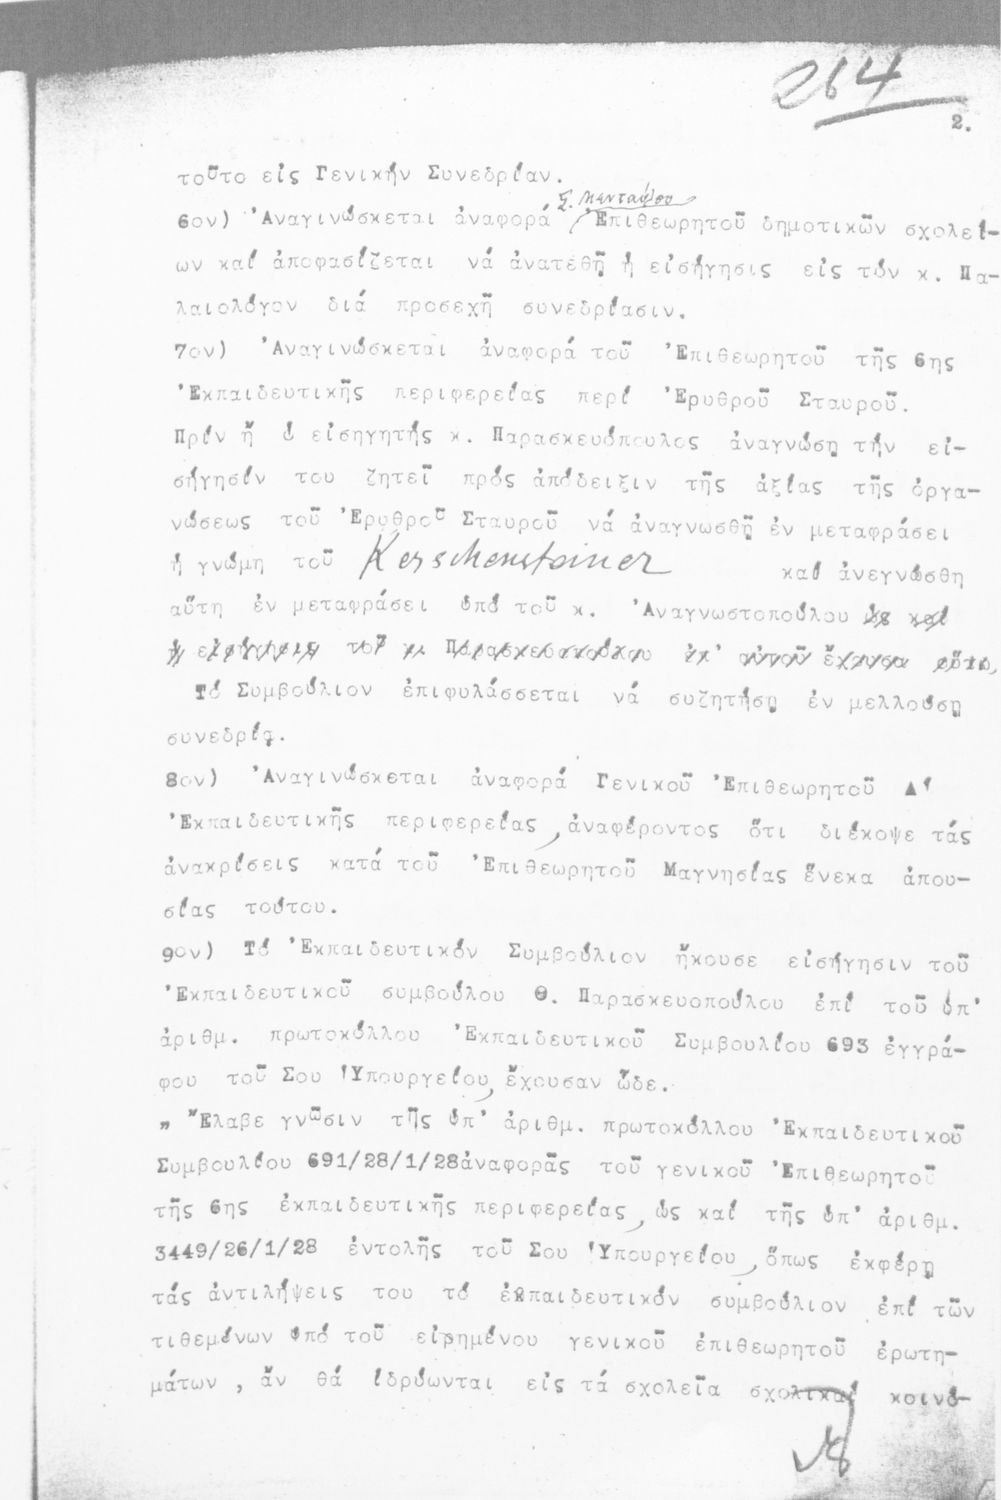 264
2.
τοῦτο εἰς Γενικήν Συνεδρίαν.
6ον) Ἀναγινώσκεται ἀναφορά Ἐπιθεωρητοῦ δημοτικῶν σχολεί-
ων καί ἀποφασίζεται νά ἀνατεθῇ ἡ εἰσήγησις εἰς τόν κ. Πα-
λαιολόγον διά προσεχῆ συνεδρίασιν.
7ον) Ἀναγινώσκεται ἀναφορά τοῦ Ἐπιθεωρητοῦ τῆς 6ης
Ἐκπαιδευτικῆς περιφερείας περί Ἐρυθροῦ Σταυροῦ.
Πρίν ἤ ὁ εἰσηγητής κ. Παρασκευόπουλος ἀναγνώσῃ τήν εἰ-
σήγησίν του ζητεῖ πρός ἀπόδειξιν τῆς ἀξίας τῆς ὀργα-
νώσεως τοῦ Ἐρυθροῦ Σταυροῦ νά ἀναγνωσθῇ ἐν μεταφράσει
ἡ γνώμη τοῦ Kerschensteiner καί ἀνεγνώσθη
αὕτη ἐν μεταφράσει ὑπό τοῦ κ. Ἀναγνωστοπούλου ὡς καί
ἡ εἰσήγησις τοῦ κ. Παρασκευοπούλου ὑπ' αὐτοῦ ἔχουσα οὕτω,
Τό Συμβούλιον ἐπιφυλάσσεται νά συζητήσῃ ἐν μελλούσῃ
συνεδρίᾳ.
8ον) Ἀναγινώσκεται ἀναφορά Γενικοῦ Ἐπιθεωρητοῦ Δ'
Ἐκπαιδευτικῆς περιφερείας, ἀναφέροντος ὅτι διέκοψε τάς
ἀνακρίσεις κατά τοῦ Ἐπιθεωρητοῦ Μαγνησίας ἕνεκα ἀπου-
σίας τούτου.
9ον) Τό Ἐκπαιδευτικόν Συμβούλιον ἤκουσε εἰσήγησιν τοῦ
Ἐκπαιδευτικοῦ συμβούλου Θ. Παρασκευοπούλου ἐπί τοῦ ὑπ'
ἀριθμ. πρωτοκόλλου Ἐκπαιδευτικοῦ Συμβουλίου 693 ἐγγρά-
φου τοῦ Σου Ὑπουργείου, ἔχουσαν ὧδε.
„ Ἔλαβε γνῶσιν τῆς ὑπ' ἀριθμ. πρωτοκόλλου Ἐκπαιδευτικοῦ
Συμβουλίου 691/28/1/28ἀναφορᾶς τοῦ γενικοῦ Ἐπιθεωρητοῦ
τῆς 6ης ἐκπαιδευτικῆς περιφερείας, ὡς καί τῆς ὑπ' ἀριθμ.
3449/26/1/28 ἐντολῆς τοῦ Σου Ὑπουργείου, ὅπως ἐκφέρῃ
τάς ἀντιλήψεις του τό ἐκπαιδευτικόν συμβούλιον ἐπί τῶν
τιθεμένων ὑπό τοῦ εἰρημένου γενικοῦ ἐπιθεωρητοῦ ἐρωτη-
μάτων , ἄν θά ἱδρύωνται εἰς τά σχολεῖα σχολικαί κοινό-